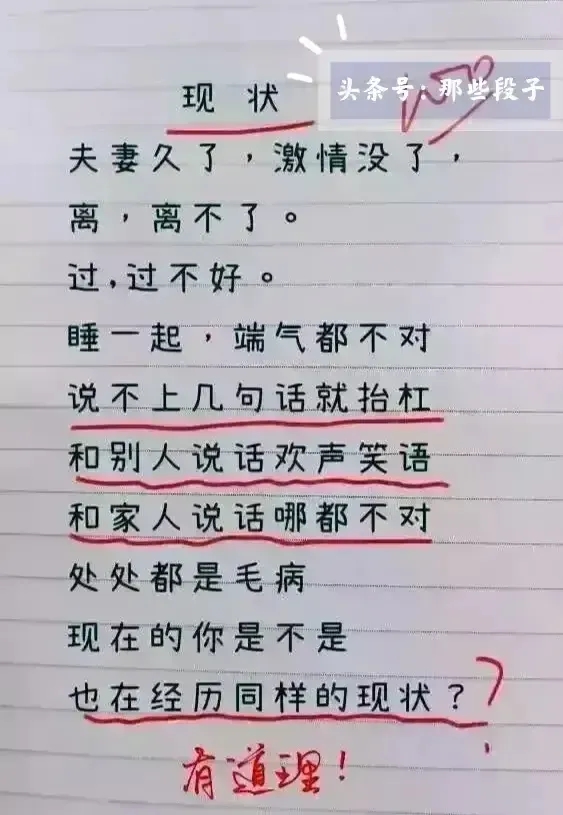 头条号：那些段子
100
现状
夫妻久了，激情没了，
离，离不了。
过，过不好。
睡一起，端气都不对
说不上几句话就抬杠
和别人说话欢声笑语
和家人说话哪都不对
处处都是毛病
现在的你是不是
也在经历同样的现状？
有道理！